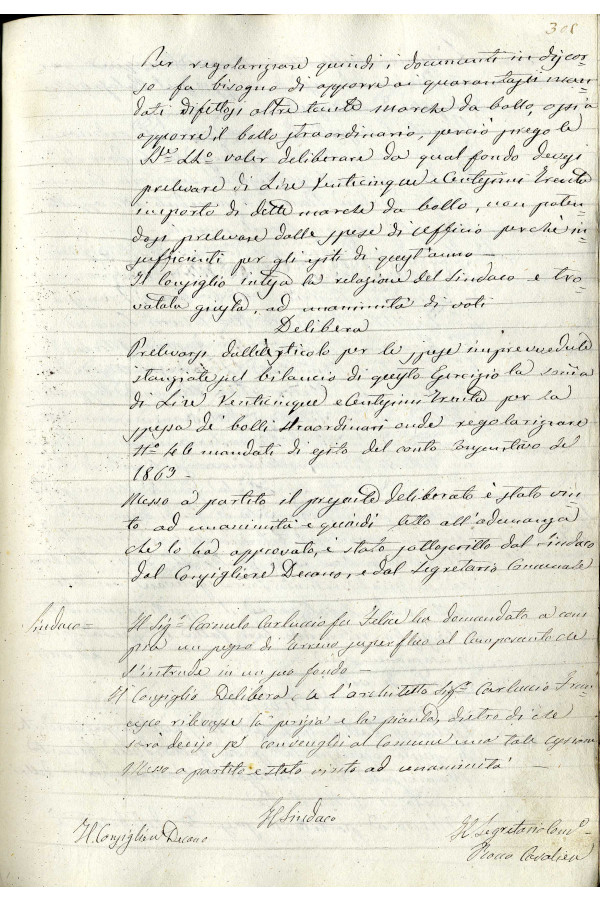 308
Per regolarizzare quindi i documenti in discor-
so fa bisogno di apporre ai quarantasei man-
dati difettosi altre tante marche da bollo, ossia
apporre il bollo straordinario, perciò prego le
voler deliberare da qual fondo devesi
prelevare di Lire Venticinque e Centesimi Trenta
importo di dette marche da bollo, non poten-
dosi prelevare dalle spese di Officio perchè in-
sufficienti per gli esiti di quest'anno —
Il Consiglio intesa la relazione del Sindaco e tro-
vatala giusta, ad unanimità di voti
Delibera
Prelevarsi dall'articolo per le spese imprevedute
stanziate nel bilancio di questo Esercizio la soma
di Lire Venticinque e Centesimi trenta per la
spesa de' bolli straordinari onde regolarizzare
N.º 46 mandati di esito del conto Consuntivo del
1863 -
Messo a partito il presente deliberato è stato vin-
to ad unanimità e quindi letto all'adunanza
che lo ha approvato, è stato sottoscritto dal Sindaco
dal Consigliere Decano, e dal Segretario Comunale
Sindaco = Il Sig.r Carmelo Carluccio fu Felice ha domandato a com
pra un pezzo di terreno superfluo al Camposanto che
s'intrude in un suo fondo —
Il Consiglio Delibera, che l'architetto Sig.r Carluccio Fran-
cesco rilevasse la perizia e la pianta, dietro di che
sarà deciso se convenghi al Comune una tale
Messo a partito è stato vinto ad unanimità —
Il Sindaco
Il Consigliere Decano
Il Segretario Com.e
Rocco Cavalieri